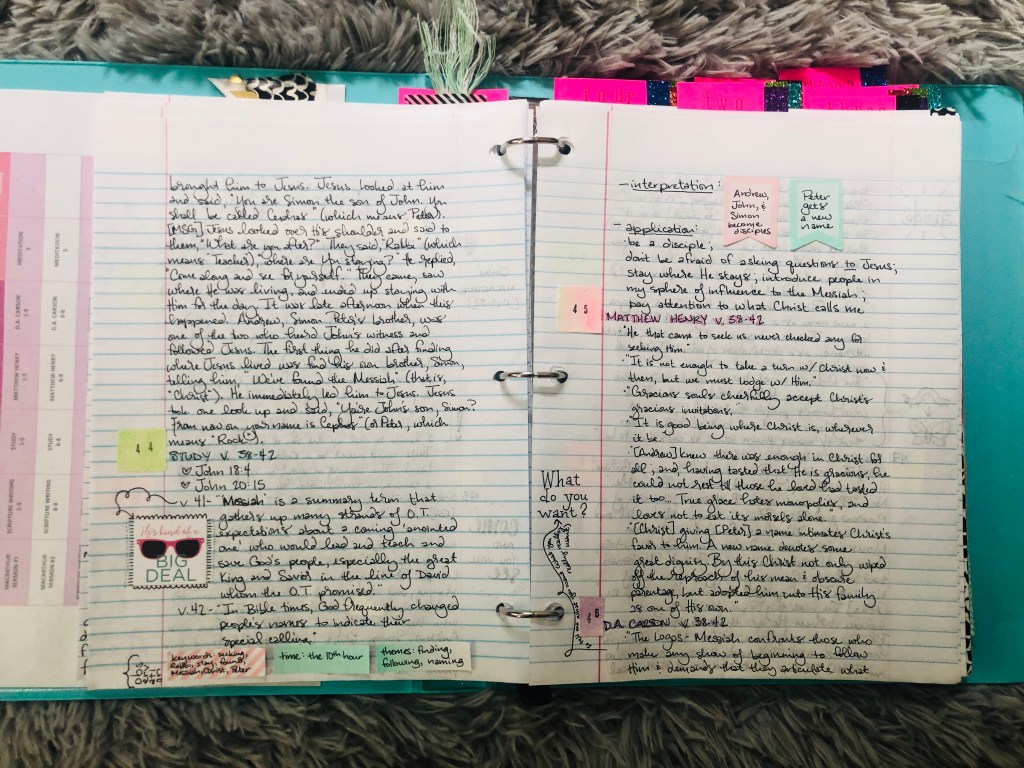 brought him to Jesus. Jesus looked at him
and said, "You are Simon the son of John. You
shall be called Cephas" (which means Peter).
[MSG] Jesus looked over His shoulder and said to
them, "What are you after?" They said, "Rabbi" (which
means Teacher), "where are you staying?" He replied,
"Come along and see for yourself." They came, saw
where He was living, and ended up staying with
Him for the day. It was late afternoon when this
happened. Andrew, Simon Peter's brother, was
one of the two who heard John's witness and
followed Jesus. The first thing he did after finding
where Jesus lived was find his own brother, Simon,
telling him, "We've found the Messiah" (that is,
"Christ"). He immediately led him to Jesus. Jesus
took one look up and said, "You're John's son, Simon?
From now on your name is Cephas" (or Peter, which
means "Rock").
44
STUDY v. 38-42
John 18:4
John 20:15
v. 41- "'Messiah' is a summary term that
gathers up many strands of O.T.
expectations about a coming 'anointed
one' who would lead and teach and
save God's people, especially the great
King and Savior in the line of David
whom the O.T. promised."
v. 42- "In Bible times, God frequently changed
people's names to indicate their
special calling."
He's kind of a
BIG
DEAL
keywords: seeking,
Rabbi, stay, found,
Messiah, Christ, Peter
time: the 10th hour
themes: finding,
following, naming
MEDITATION
D.A. CARSON
MATTHEW HENRY
STUDY
SCRIPTURE WRITING
MACARTHUR
MEDITATION
D.A. CARSON
MATTHEW HENRY
STUDY
SCRIPTURE WRITING
MACARTHUR
two
- interpretation:
Andrew,
John, &
Simon
become
disciples
Peter
gets
a new
name
- application:
be a disciple;
don't be afraid of asking questions to Jesus;
stay where He stays; introduce people in
my sphere of influence to the Messiah;
pay attention to what Christ calls me
45
MATTHEW HENRY v. 38-42
"He that came to seek us never checked any for
seeking Him."
"It is not enough to take a turn w/ Christ now &
then, but we must lodge w/ Him."
"Gracious souls cheerfully accept Christ's
gracious invitations."
"It is good being where Christ is, wherever
it be."
"[Andrew] knew there was enough in Christ for
all, and having tasted that He is gracious, he
could not rest till those he loved had tasted
it too... True grace hates monopolies, and
loves not to eat its morsels alone."
"[Christ] giving [Peter] a name intimates Christ's
favor to him. A new name denotes some
great dignity. By this Christ not only wiped
off the reproach of his mean & obscure
parentage, but adopted him into His family
as one of His own."
What
do you
want?
46
D.A. CARSON v. 38-42
"The Logos-Messiah confronts those who
make any show of beginning to follow
Him & demands that they articulate what